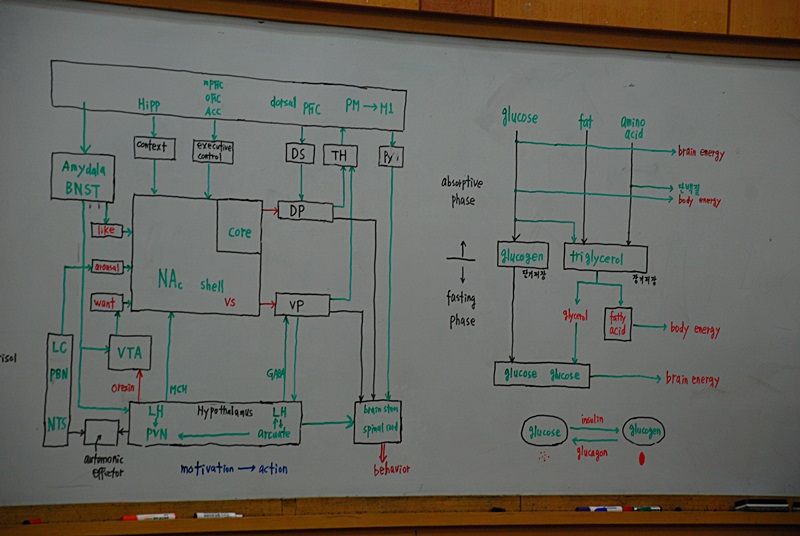 mPFC
OFC
ACC
Hipp
dorsal PFC
PM → M1
context
executive
control
DS
TH
Py
Amydala
BNST
like
arousal
want
core
NAc shell
VS
DP
VP
LC
PBN
NTS
VTA
orexin
MCH
GABA
LH
Hypothalamus
LH
PVN
arcuate
brain stem
spinal cord
autonomic
effector
motivation → action
behavior
risol
glucose
fat
amino
acid
brain energy
absorptive
phase
단백질
body energy
glucogen
단기저장
triglycerol
장기저장
fasting
phase
glycerol
fatty
acid
body energy
glucose glucose
brain energy
glucose
insulin
glucagon
glucogen